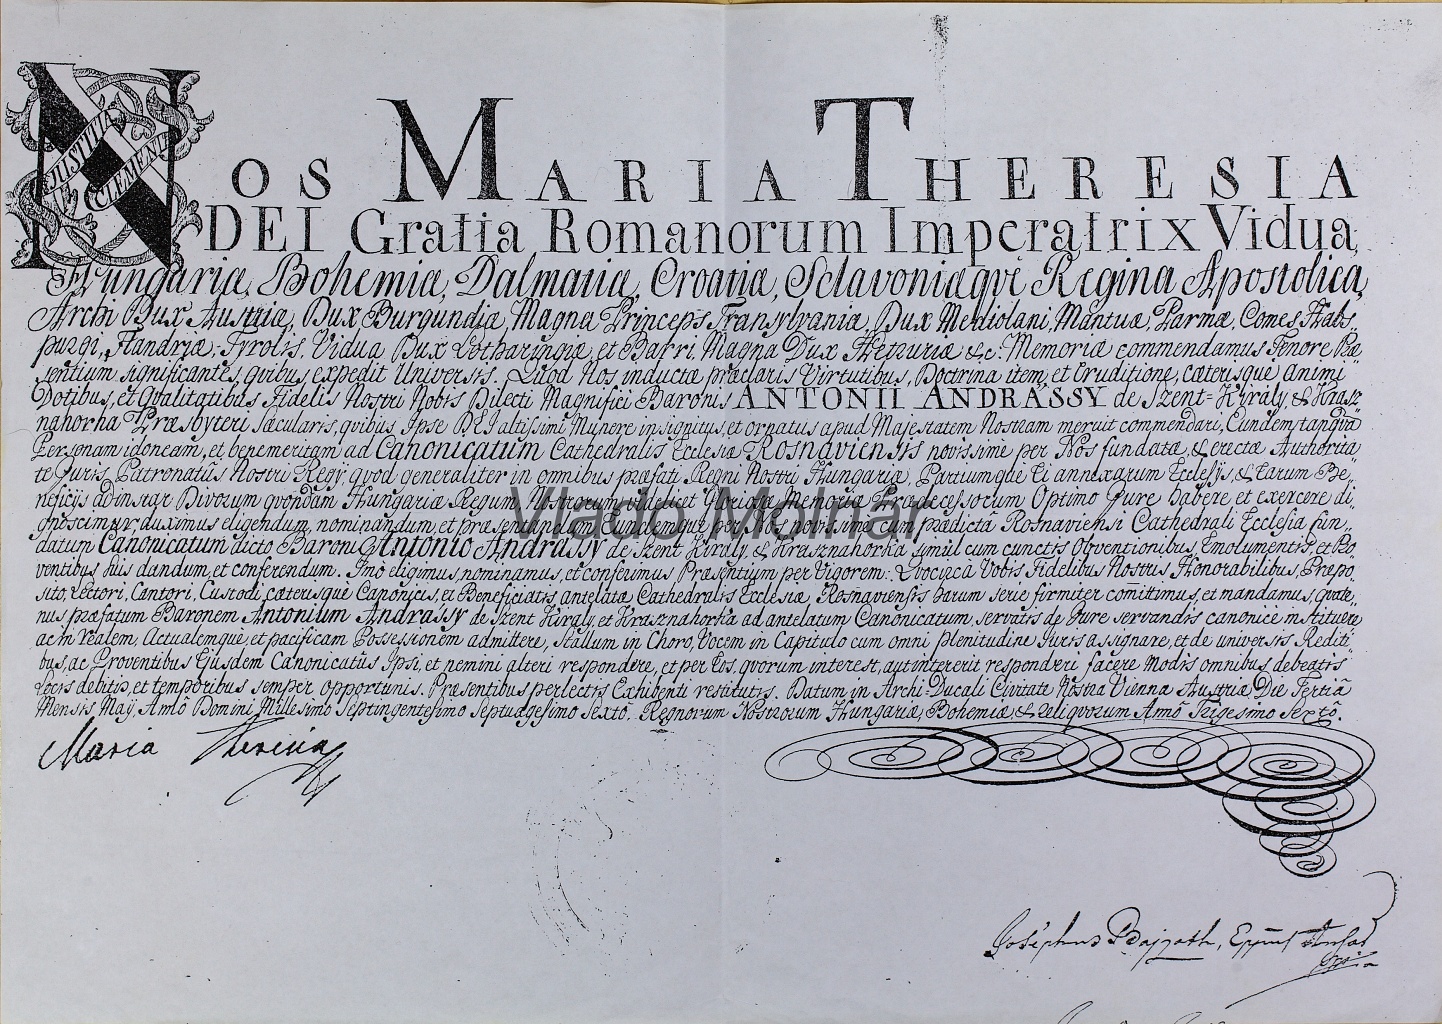 NOS MARIA THERESIA
JUSTITIA ET CLEMENTIA
DEI Gratia Romanorum Imperatrix Vidua,
Hungariæ, Bohemiæ, Dalmatiæ, Croatiæ, Sclavoniæqve Regina Apostolica,
Archi Dux Austriæ, Dux Burgundiæ, Magna Princeps Transylvaniæ, Dux Mediolani, Mantuæ, Parmæ, Comes Habs-
purgi, Flandriæ, Tyrolis, Vidua Dux Lotharingiæ, et Barri, Magna Dux Hetruriæ &c: Memoriæ commendamus Tenore Præ-
sentium significantes, qvibus expedit Universis. Quod Nos inductæ præclaris Virtutibus, Doctrina item, et Eruditione, cæterisque Animi
Dotibus, et Qvalitatibus Fidelis Nostri Nobis Dilecti Magnifici Baronis ANTONII ANDRÁSSY de Szent-Király, & Krasz-
nahorka Præsbyteri Sæcularis, qvibus Ipse DEI altissimi Munere insignitus, et ornatus apud Majestatem Nostram meruit commendari, Eundem tanqva
Personam idoneam, et benemeritam ad Canonicatum Cathedralis Ecclesiæ Rosnaviensis novissime per Nos fundatæ, & erectæ Authorita-
te Juris Patronatûs Nostri Regij, qvod generaliter in omnibus præfati Regni Nostri Hungariæ, Partiumqve Ei annexarum Ecclesijs, & earum Be-
neficijs ad instar Divorum qvondam Hungariæ Regum, Nostrorum videlicet Gloriosæ Memoriæ Prædecessorum Optimo Jure habere et exercere di-
gnoscimur, duximus eligendum, nominandum, et præsentandum, Eundemque per Nos novissime cum prædicta Rosnaviensi Cathedrali Ecclesia fun-
datum Canonicatum dicto Baroni Antonio Andrássy de Szent Király, & Krasznahorka simul cum cunctis Obventionibus Emolumentis, et Pro-
ventibus suis dandum, et conferendum. Imò eligimus, nominamus, et conferimus Præsentium per Vigorem. Qvocircà Vobis Fidelibus Nostris Honorabilibus, Præpo-
sito, Lectori, Cantori, Custodi, cæterisque Canonicis, et Beneficiatis antelatæ Cathedralis Ecclesiæ Rosnaviensis harum serie firmiter com̄ittimus, et mandamus, Qvate-
nus præfatum Baronem Antonium Andrássy de Szent Király, et Krasznahorka ad antelatum Canonicatum, servatis de Jure servandis canonicè instituere
ac in realem, Actualemque et pacificam Possessionem admittere, Stallum in Choro, Vocem in Capitulo cum omni plenitudine Juris assignare, et de universis Rediti-
bus, ac Proventibus Ejusdem Canonicatûs Ipsi, et nemini alteri respondere, et per Eos, qvorum interest, aut intererit responderi facere Modis omnibus debeatis
Locis debitis, et temporibus semper opportunis. Præsentibus perlectis Exhibenti restitutis. Datum in Archi-Ducali Civitate Nostra Vienna Austriæ, Die Tertiâ
Mensis Maij, Anno Domini Millesimo Septingentesimo Septuagesimo Sextô. Regnorum Nostrorum Hungariæ, Bohemiæ, & reliqvorum Annô Trigesimo Sextô.
Maria Theresia
Vlado Molnár
Josephus Bajzath,